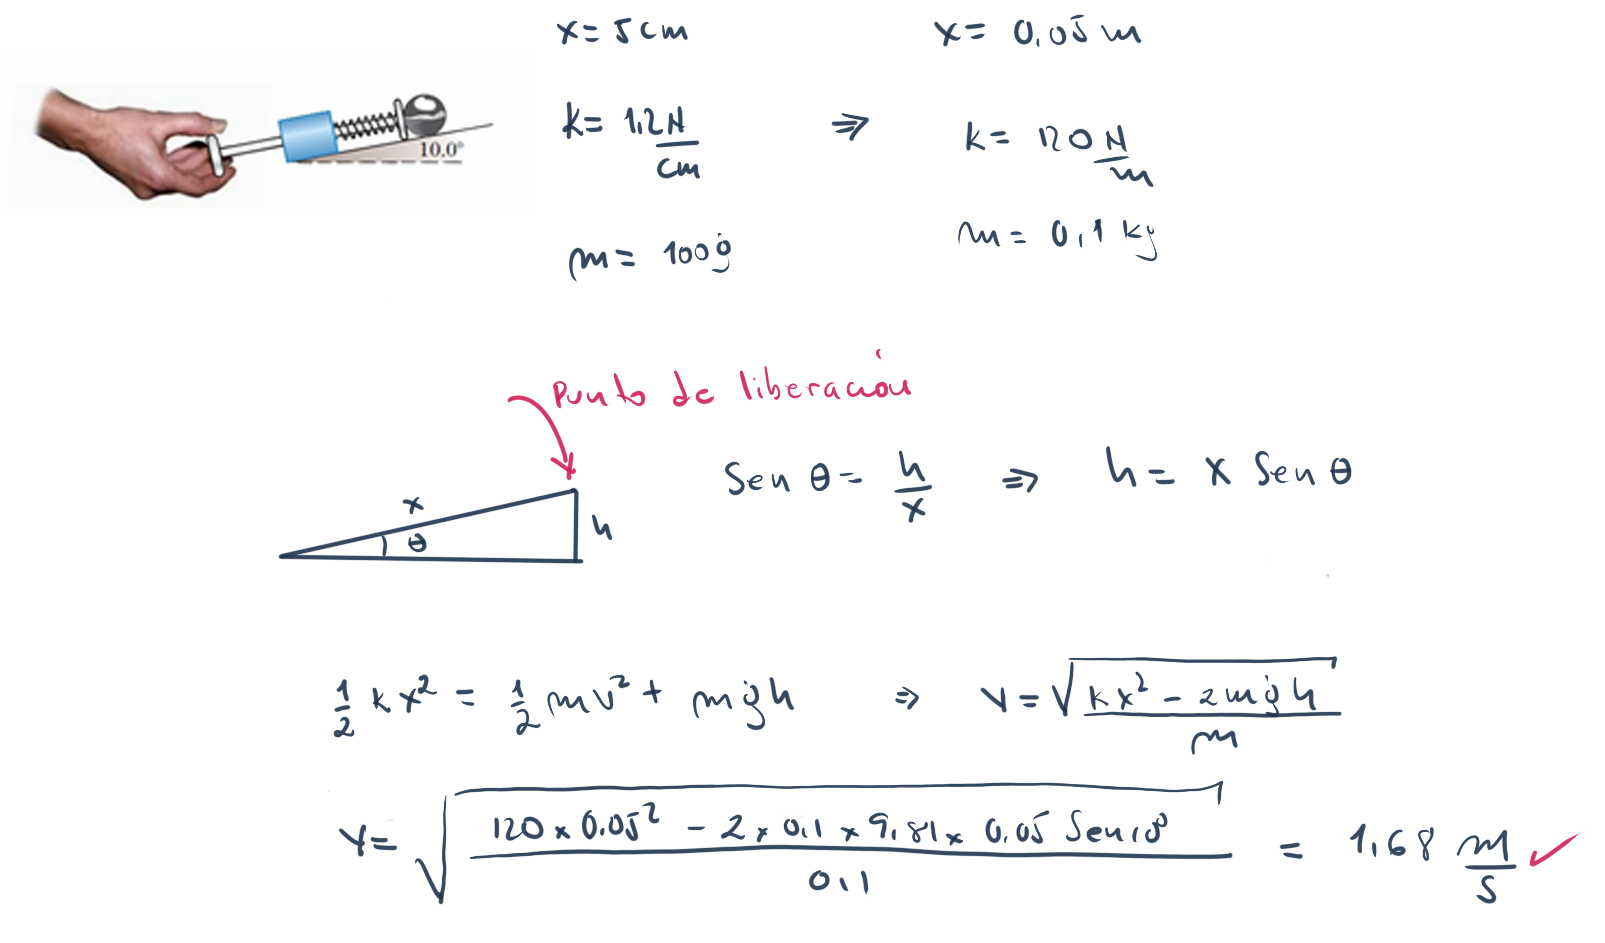 x = 5 cm
x = 0.05 m
k = 1.2 N/cm ⇒ k = 120 N/m
m = 100 g
m = 0,1 kg
10.0°
Punto de liberación
x
θ
h
Sen θ = h/x ⇒ h = x Sen θ
1/2 k x² = 1/2 m v² + m g h ⇒ v = √((k x² - 2 m g h)/m)
v = √((120 x 0.05² - 2 x 0.1 x 9.81 x 0.05 Sen 10°)/0.1) = 1.68 m/s ✓